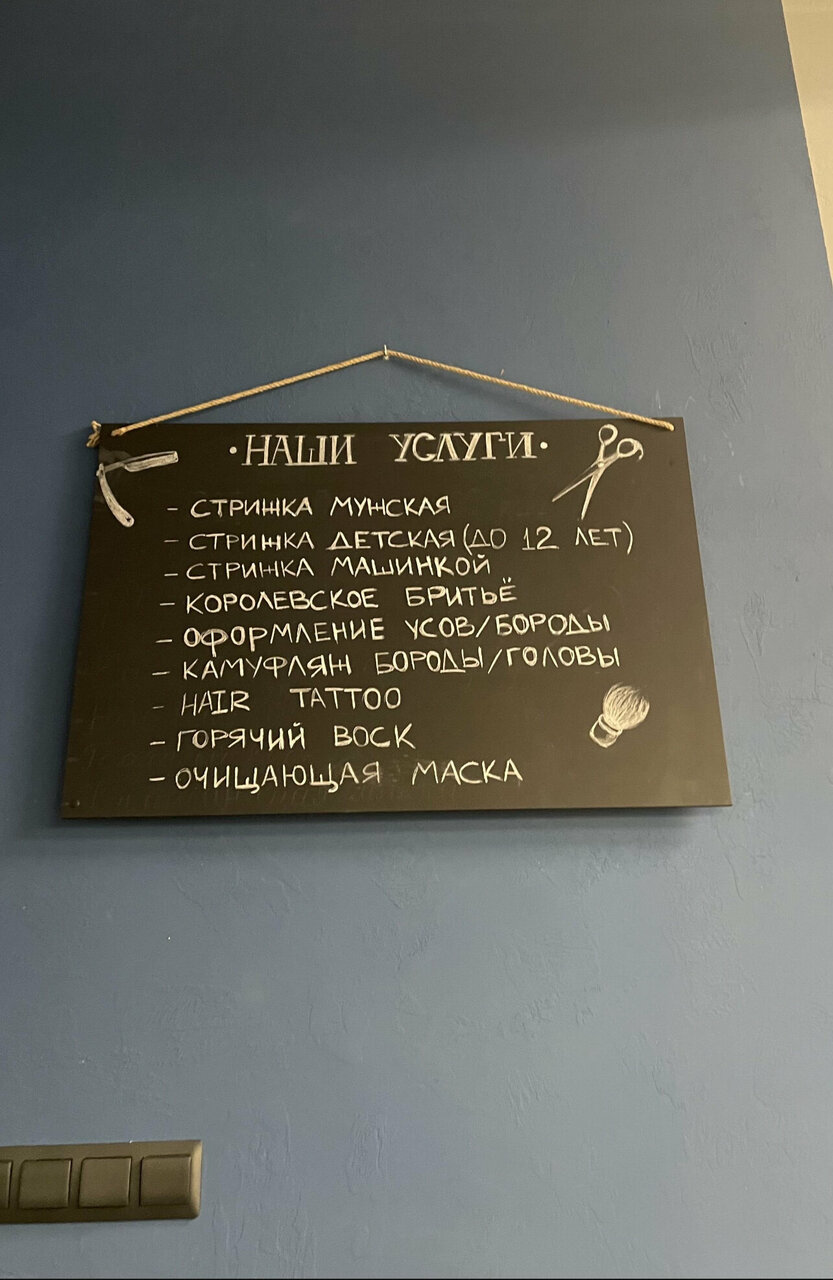 ·НАШИ УСЛУГИ·
- СТРИЖКА МУЖСКАЯ
- СТРИЖКА ДЕТСКАЯ (ДО 12 ЛЕТ)
- СТРИЖКА МАШИНКОЙ
- КОРОЛЕВСКОЕ БРИТЬЁ
- ОФОРМЛЕНИЕ УСОВ/БОРОДЫ
- КАМУФЛЯЖ БОРОДЫ/ГОЛОВЫ
- HAIR TATTOO
- ГОРЯЧИЙ ВОСК
- ОЧИЩАЮЩАЯ МАСКА